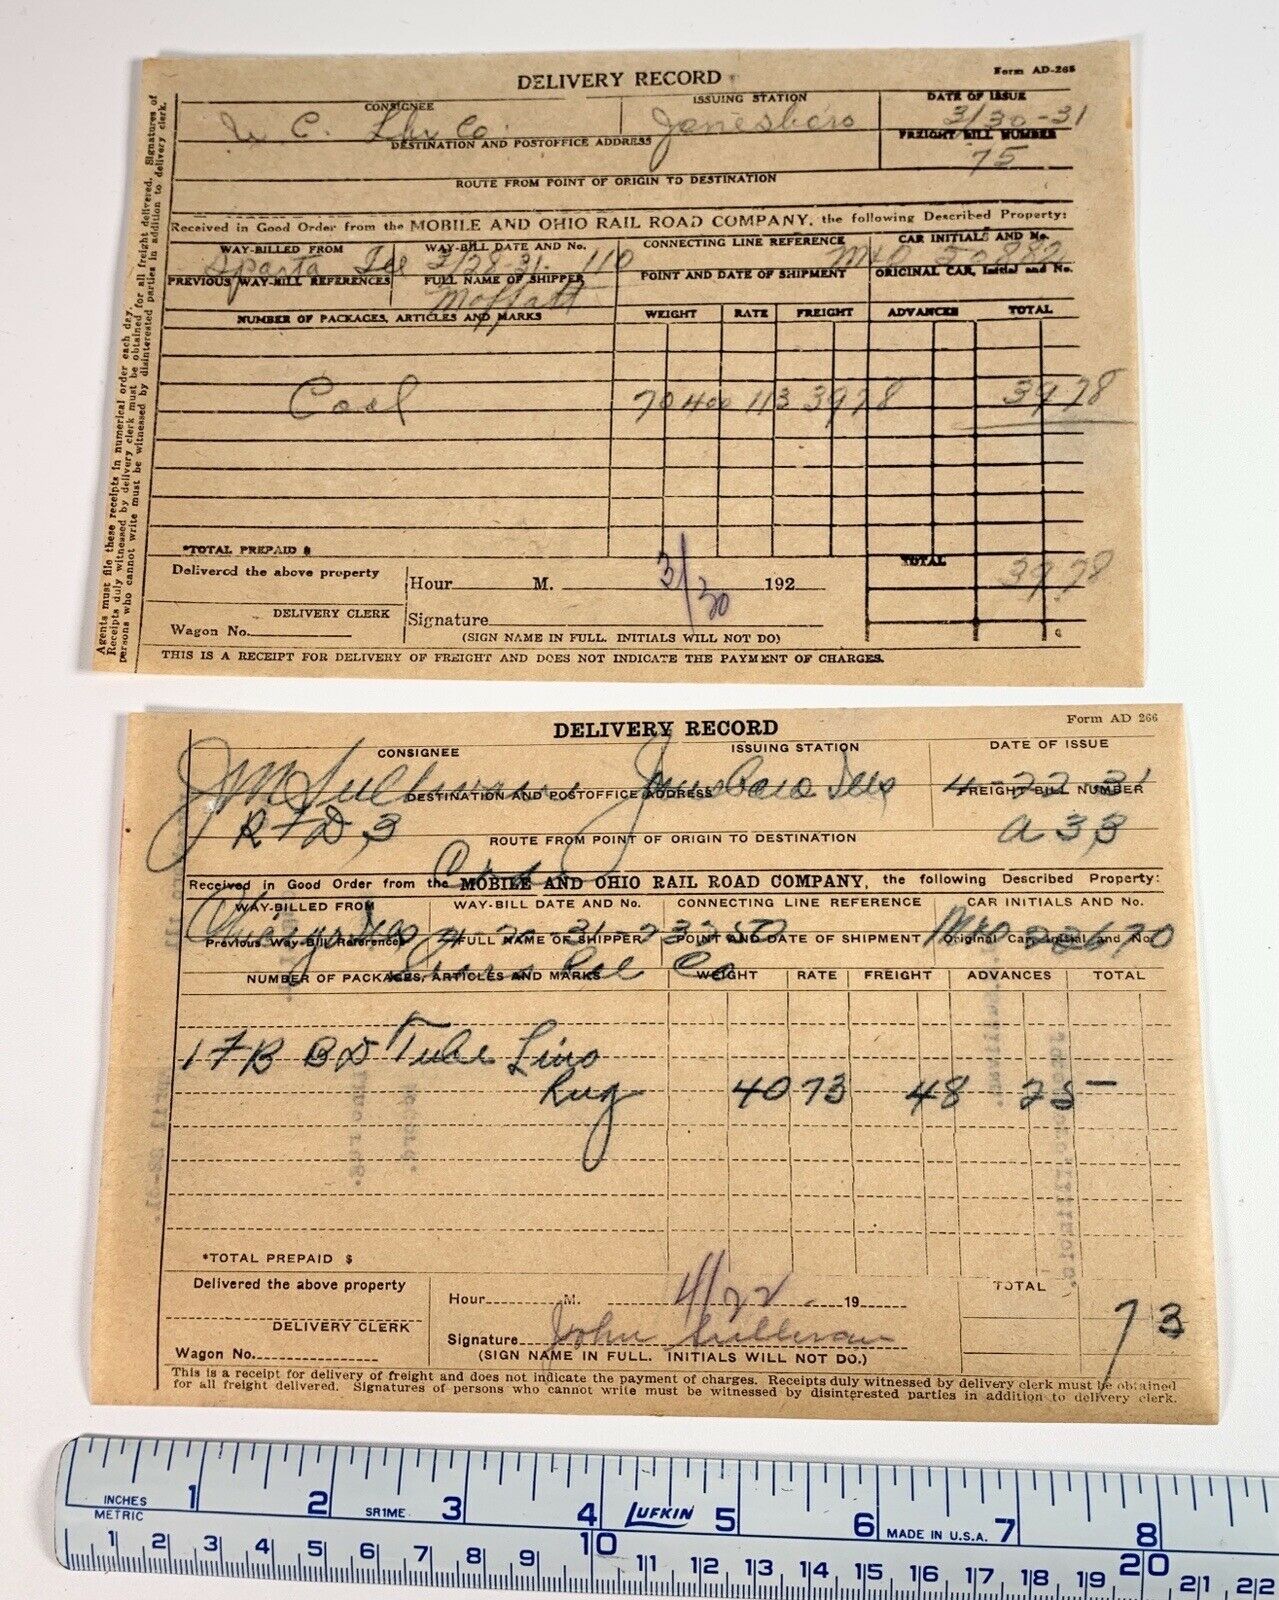 DELIVERY RECORD
Form AD-266
CONSIGNEE ISSUING STATION DATE OF ISSUE
C. Lbr Co. Jonesboro 3/30-31
DESTINATION AND POSTOFFICE ADDRESS FREIGHT BILL NUMBER
75
ROUTE FROM POINT OF ORIGIN TO DESTINATION
Received in Good Order from the MOBILE AND OHIO RAIL ROAD COMPANY, the following Described Property:
WAY-BILLED FROM WAY-BILL DATE AND No. CONNECTING LINE REFERENCE CAR INITIALS AND No.
Sparta Ill 3/28-31 110 M&O 50882
PREVIOUS WAY-BILL REFERENCES FULL NAME OF SHIPPER POINT AND DATE OF SHIPMENT ORIGINAL CAR, Initial and No.
Moffatt
NUMBER OF PACKAGES, ARTICLES AND MARKS WEIGHT RATE FREIGHT ADVANCES TOTAL
Coal 70400 113 39 78 39 78
*TOTAL PREPAID $
TOTAL 39.78
Delivered the above property
Hour M. 3/30 192
DELIVERY CLERK
Signature
Wagon No.
(SIGN NAME IN FULL. INITIALS WILL NOT DO)
THIS IS A RECEIPT FOR DELIVERY OF FREIGHT AND DOES NOT INDICATE THE PAYMENT OF CHARGES.
Agents must file these receipts in numerical order each day.
Receipts duly witnessed by delivery clerk must be obtained for all freight delivered. Signatures of
persons who cannot write must be witnessed by disinterested parties in addition to delivery clerk.
DELIVERY RECORD
Form AD 266
CONSIGNEE ISSUING STATION DATE OF ISSUE
J M Sullivan Jonesboro Ills 4-22-31
DESTINATION AND POSTOFFICE ADDRESS FREIGHT BILL NUMBER
R F D 3 A 33
ROUTE FROM POINT OF ORIGIN TO DESTINATION
Received in Good Order from the MOBILE AND OHIO RAIL ROAD COMPANY, the following Described Property:
WAY-BILLED FROM WAY-BILL DATE AND No. CONNECTING LINE REFERENCE CAR INITIALS AND No.
Chicago Ills 4-20-31-23250 M&O 23670
Previous Way-Bill References FULL NAME OF SHIPPER POINT AND DATE OF SHIPMENT Original Car, Initial and No.
Co
NUMBER OF PACKAGES, ARTICLES AND MARKS WEIGHT RATE FREIGHT ADVANCES TOTAL
1 Tube Lino
Rug 40 73 48 25
*TOTAL PREPAID $
Delivered the above property
TOTAL
Hour M. 4/22 19
73
DELIVERY CLERK
Signature John Sullivan
Wagon No.
(SIGN NAME IN FULL. INITIALS WILL NOT DO.)
This is a receipt for delivery of freight and does not indicate the payment of charges. Receipts duly witnessed by delivery clerk must be obtained
for all freight delivered. Signatures of persons who cannot write must be witnessed by disinterested parties in addition to delivery clerk.
INCHES 1 2 SR1ME 3 4 LUFKIN 5 6 MADE IN U.S.A. 7 8
METRIC 1 2 3 4 5 6 7 8 9 10 11 12 13 14 15 16 17 18 19 20 21 22